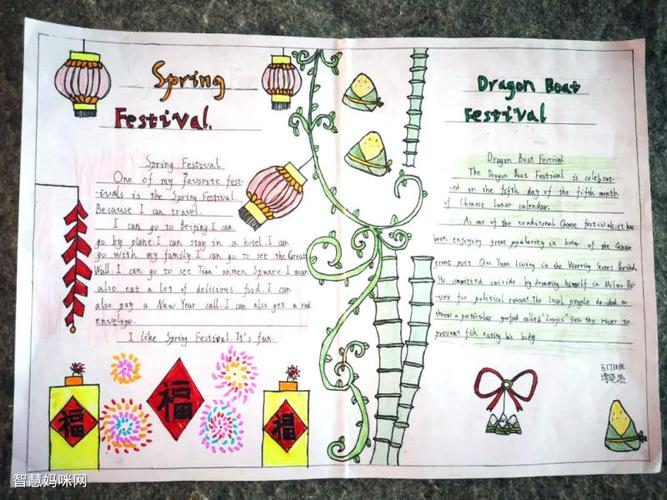 Spring
Festival.
Spring Festival
One of my favorite fest-
ivals is the Spring Festival.
Because I can travel.
I can go to Beijing.I can
go by plane.I can stay in a hotel.I can
go with my family.I can go to see the Great
Wall.I can go to see Tian'anmen Square.I can
also eat a lot of delicious food.I can
also pay a New Year call.I can also get a red
envelope.
I like Spring Festival.It's fun.
福
福
福
Dragon Boat
Festival
Dragon Boat Festival
The Dragon Boat Festival is celebrat-
ed on the fifth day of the fifth month
of Chinese lunar calendar.
As one of the traditional Chinese festivals, it has
been enjoying great popularity in honor of the
great poet Qu Yuan living in the Warring States Period.
He committed suicide by drowning himself in Miluo Ri-
ver for political reasons the local people decided to
throw a particular called "Zongzi" into the river to
prevent fish eating his body
班
智慧妈咪网